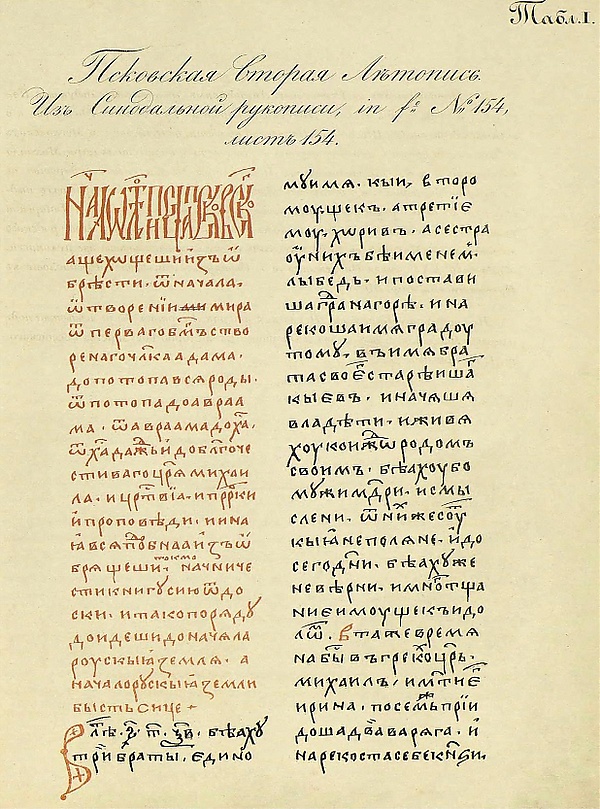 Табл. I.
Псковская Вторая Лѣтопись.
Изъ Синодальной рукописи, in f.º № 154,
листъ 154.
аще хощеши и҆зъ ѡ҃
брѣсти · ѿ начала ·
ѿ творенїи мира
ѿ перваго бг҃мъ ство
ренаго чл҃ка адама ·
до потопа вся роды ·
ѿ потопа до авраа
ма · ѿ авраама до ха҃ ·
ѿ ха҃ даж и҆ до бл҃гоче
стиваго цр҃я михаи
ла · и цр҃твїа · и пр҃рки
и҆ проповѣди · и и на
ꙗ вся пѡдобнаа и҆зъ ѡ
брящеши · токмо начниче
сти книгу сию ѿ до
ски · и тако поряду
доидеши до начяла
роускыꙗ земля · а
начало рускыꙗ земли
бысть сице +
В лѣ · бѣаху
три҆ браты · є҆дино
му имя · кыи, второ
моу · щекъ · а третїє
моу · хѡривъ · а сестра
оу҆ нихъ бѣ именем ·
лыбедь · и постави
ша гра на горѣ · и на
рекоша имя градоу
томꙋ, въ имя бра
та своє҆ старѣишаⷢ҇
кыєвъ · и начяшя
владѣти · и живя
хоу кои҆жⷣо родомъ
своимъ · бѣахоу бо
мужи мⷣри · и смы
слени · ѿ ни҆хже соуⷮ
кыꙗне поляне · и҆ до
сего дн҃и · бѣахꙋ же
невѣрни · и мнѡⷢ тща
ниє имоуще къ идо
лѡⷨ · В та же время
на бы҃ въ грекоⷯ цр҃ь ·
михаилъ · и мт҃и є҆ⷢ
ирина · по сеⷨ же прїи
доша два варяга · и҆
нарекоста себе кн҃ѕи ·